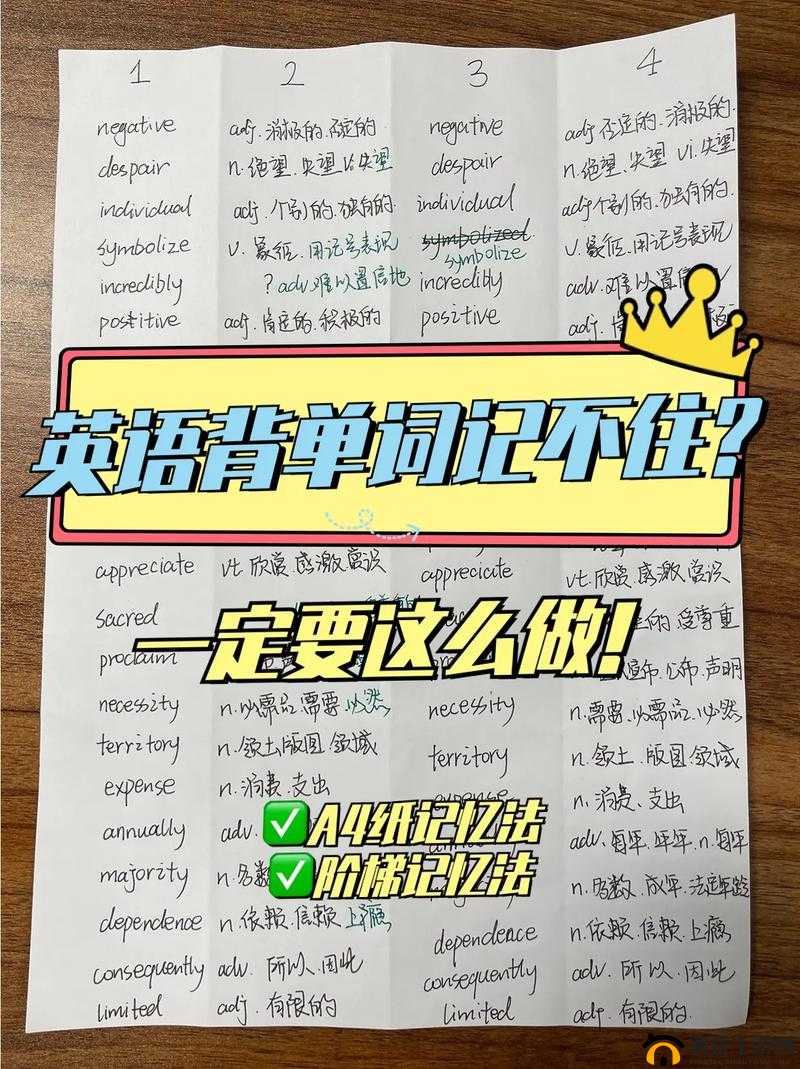 1 2 3 4
negative adj.消极的.否定的 negative adj否定的.消极的.
despair n.绝望.失望 vi失望 despair n.绝望.失望 vi.失望
individual adj.个别的.独有的. individual adj个别的.独有的.
symbolize v.象征.用记号表现 symbolized v.象征.用记号表现
symbolize
incredibly ?adv.难以置信地 incredibly adv.难以置信
positive adj.肯定的.积极的 positive adj.
英语背单词记不住?
appreciate vt.欣赏.感激.赏识 appreciate vt.欣赏.感激.赏识
sacred 的.受尊重
一定要这么做!
proclaim 宣布.公布.声明
necessity n.必需品.需要.必然 necessity n.需要.必需品.必然
territory n.领土.版图.领域 territory n.领土.版图.领域
expense n.消费.支出 n.消费.支出
annually adv. adv.每年.年年.n.每年
✅A4纸记忆法
majority n.多数 n.多数.成年.法定年龄
✅阶梯记忆法
dependence n.依赖.信赖.上瘾 dependence n.依赖.信赖.上瘾
consequently adv.所以.因此 consequently adv.所以.因此
limited adj.有限的 limited adj.有限的.